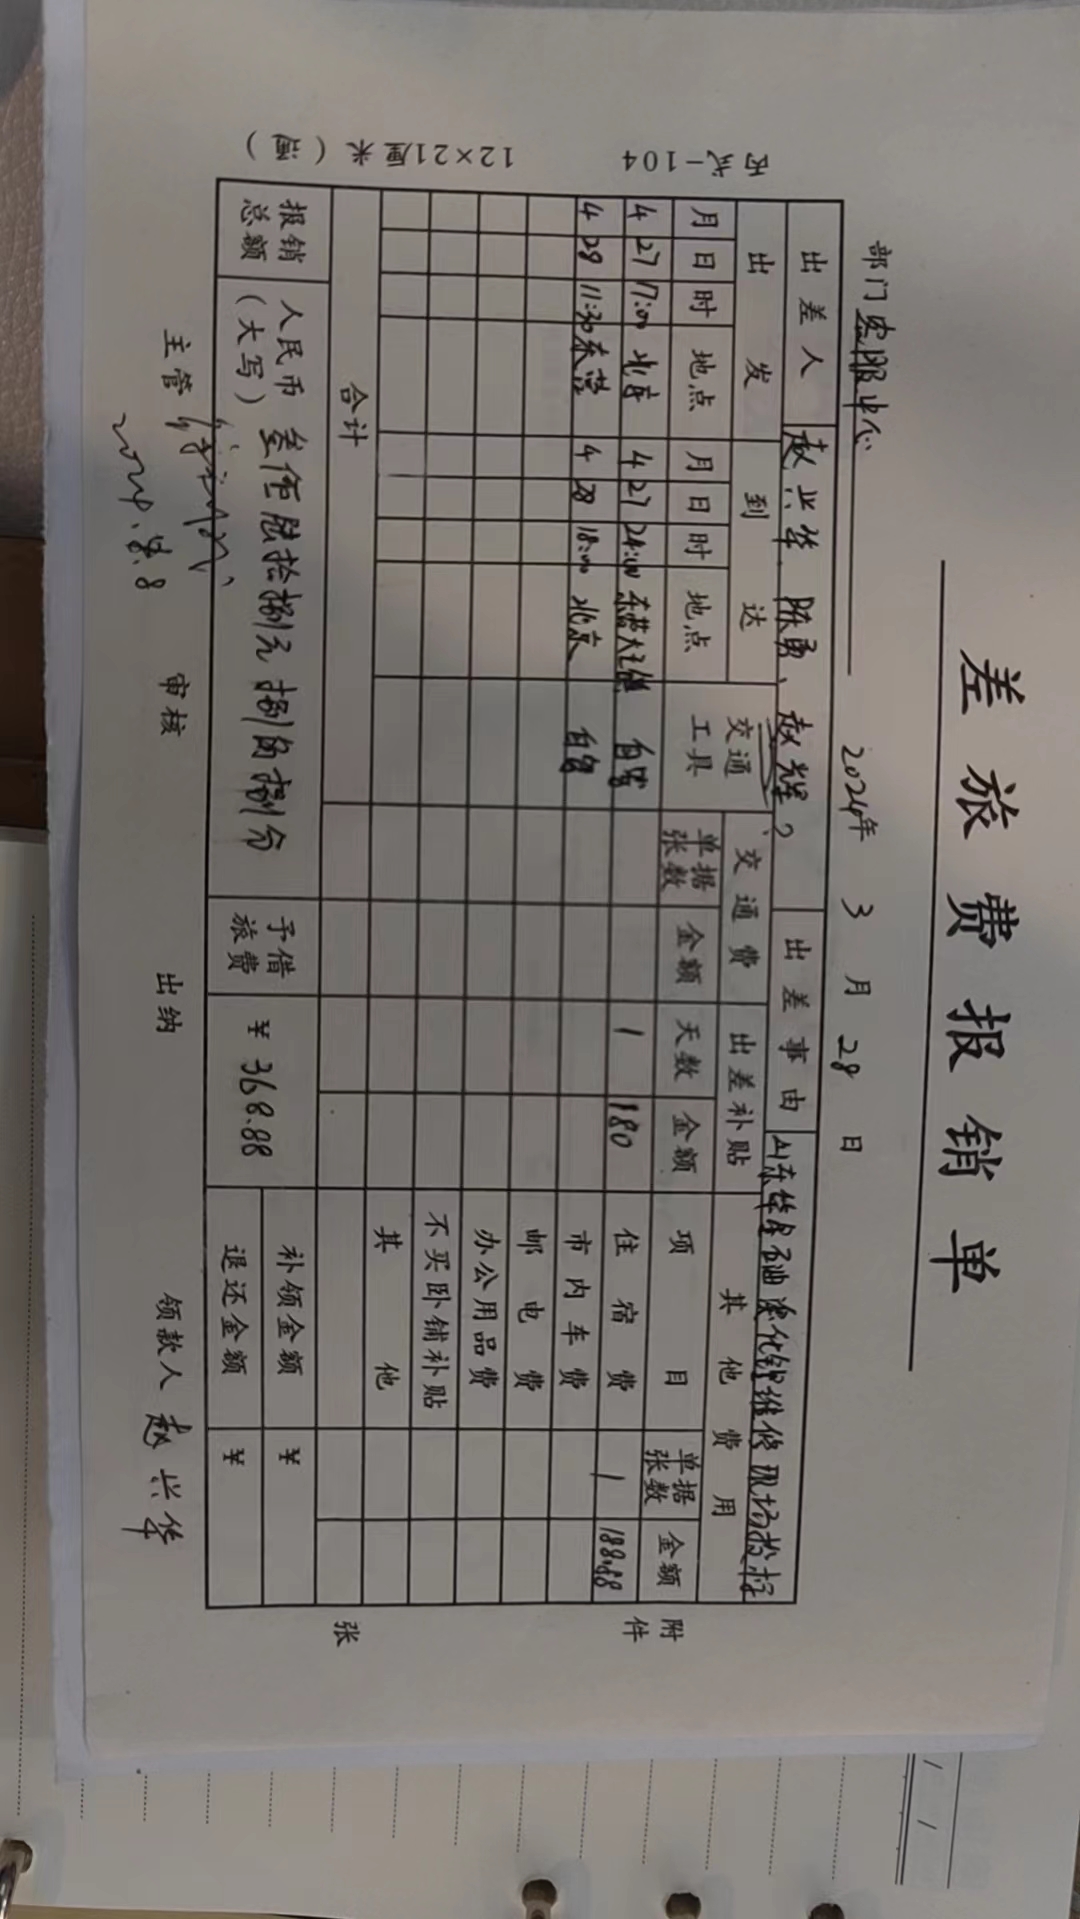 差旅费报销单
部门 客服中心 2024年 3 月 28 日
出差人 赵兴华、陈勇、赵辉 出差事由 山东华星石油 化 维修现场检
出发 到达 交通工具 交通费 出差补贴 其他费用
月 日 时 地点 月 日 时 地点 单据张数 金额 天数 金额 项目 单据张数 金额
4 27 17:00 北京 4 27 24:00 东营大王镇 自驾 1 180 住宿费 1 188.88
4 28 11:30 东营 4 28 18:00 北京 自驾 市内车费
邮电费
办公用品费
不买卧铺补贴
其他
合计
报销总额 人民币（大写） 叁佰陆拾捌元捌角捌分 予借旅费 ¥ 368.88 补领金额 ¥
退还金额 ¥
主管 审核 出纳 领款人 赵兴华
附件 张
丙式-104 12×21厘米